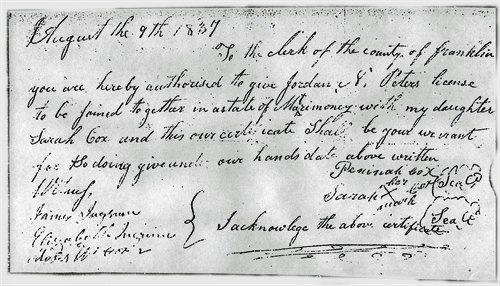 August the 9th 1837
To the clerk of the county of franklin
you are hereby authorised to give Jordan N. Peters license
to be joined together in a state of Matrimoney with my daughter
Sarah Cox and this our certificate Shall be your warrant
for So doing given under our hands date above written
Peninah Cox Seal
Witness
Sarah her X mark Cox Seal
James Ingrum
Elizabeth Ingrum
I acknowlege the above certificate